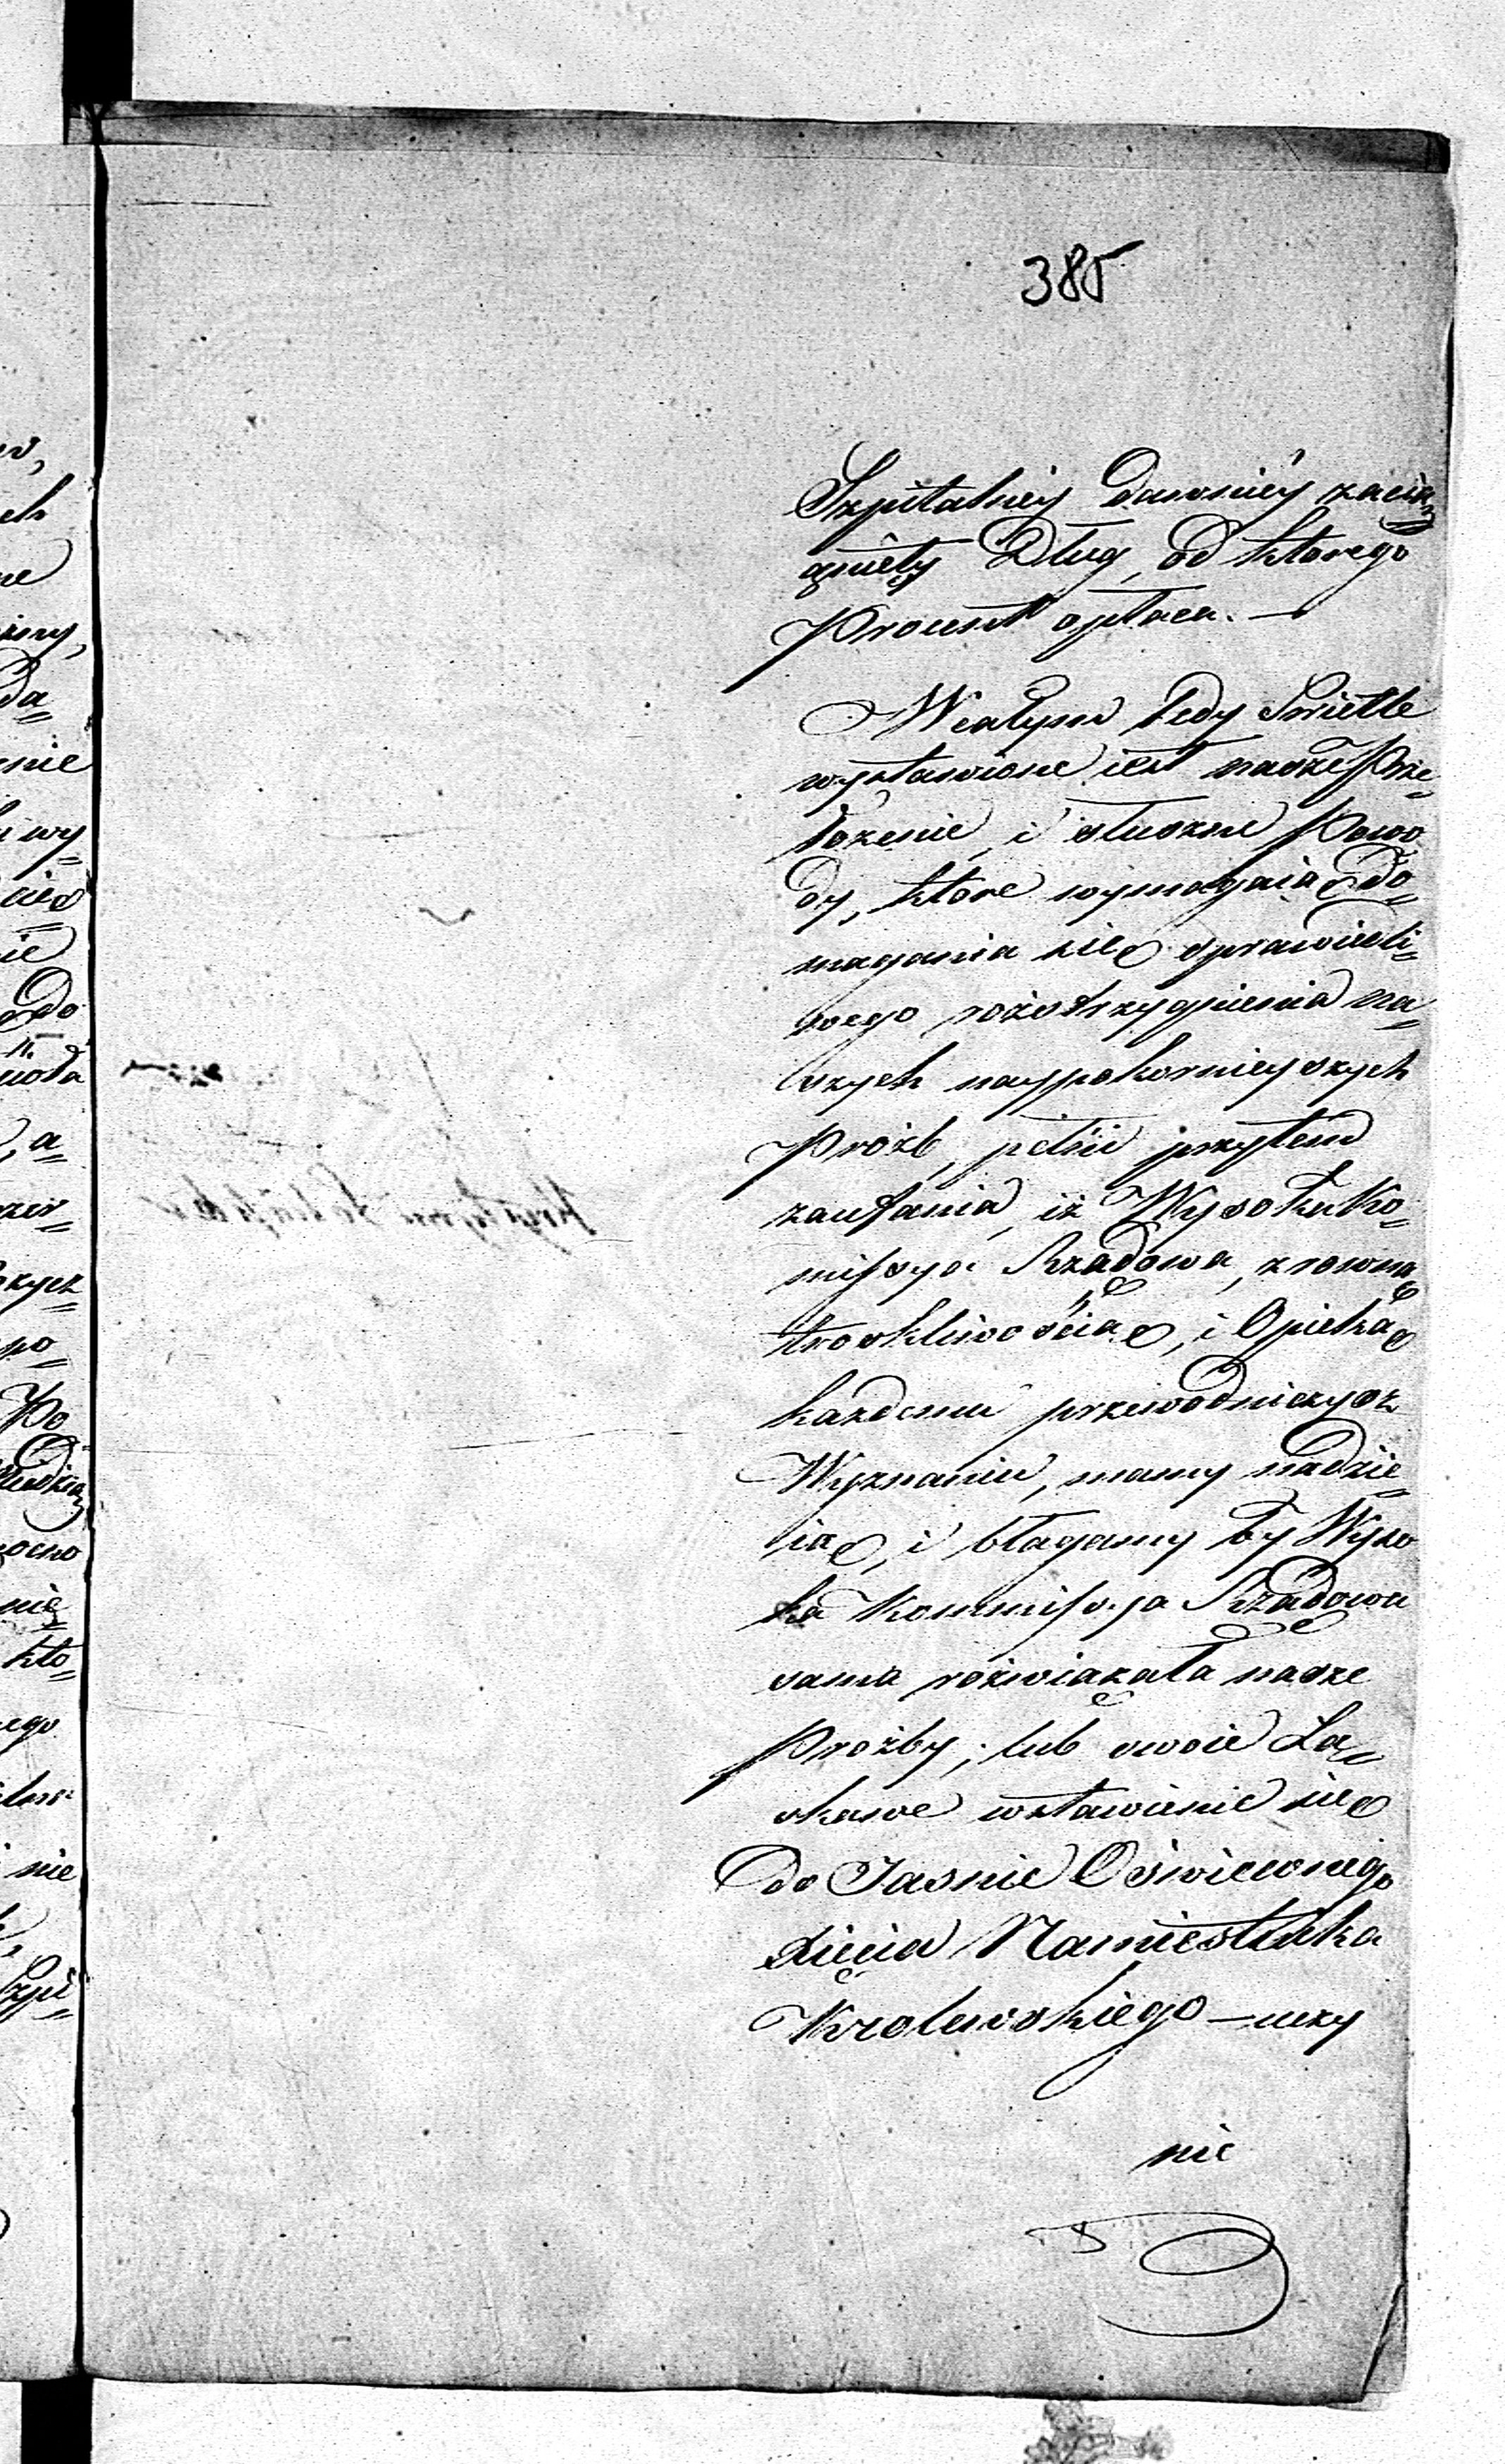 385
Szpitalnéy dawniéy zacią=
gnięty Dług, od którego
Procent opłaca. —
W całym tedy Swietle
wystawione iest nasze Prze=
łożenie, i słuszne Powo
dy, które wymagaią do=
magania się sprawiedli=
wego rozstrzygnienia na=
szych naypokornieyszych
Prożb, pełni przytem
zaufania, iż Wysoka Ko=
missya Rządowa, z rowną
troskliwością, i Opieką
każdemu przewodnicząc
Wyznaniu, mamy nadzie=
ię, i błagamy by Wyso
ka Kommissya Rządowa
sama rozwiązała nasze
Prożby; lub swoie Ła=
skawe wstawienie się
do Jasnie Oświeconego
Xięcia Namiestnika
Krolewskiego — uczy
nić